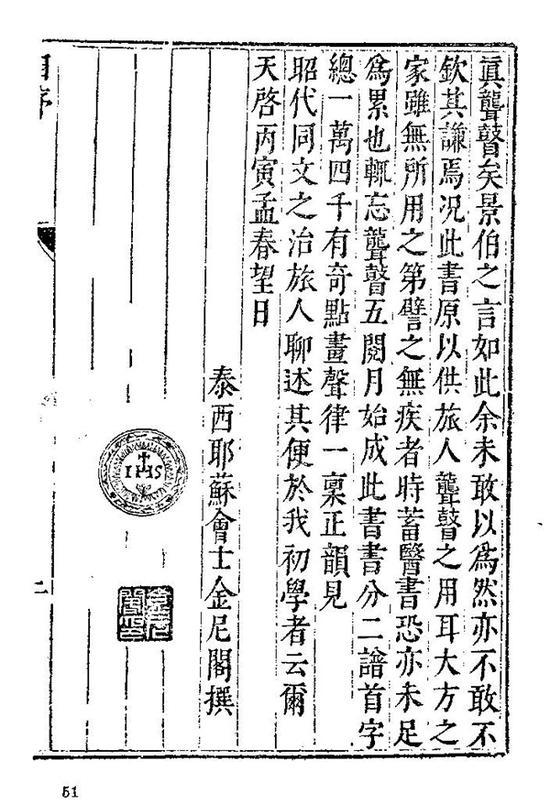 眞聾瞽矣景伯之言如此余未敢以爲然亦不敢不
欽其謙焉況此書原以供旅人聾瞽之用耳大方之
家雖無所用之第譬之無疾者時蓄醫書恐亦未足
爲累也輒忘聾瞽五閱月始成此書書分二譜首字
總一萬四千有奇點畫聲律一稟正韻見
昭代同文之治旅人聊述其便於我初學者云爾
天啓丙寅孟春望日
泰西耶蘇會士金尼閣撰
IHS
自序
二
51